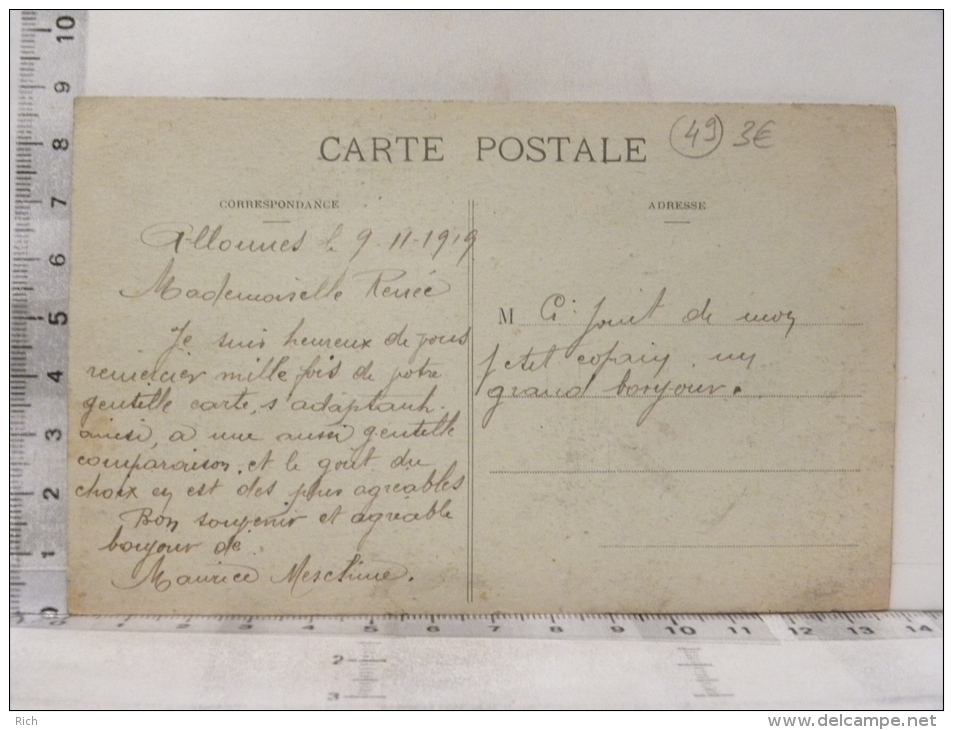 CARTE POSTALE
(49) 3€
CORRESPONDANCE
Allonnes le 9.11.1919
Mademoiselle Renée
Je suis heureux de vous
remercier mille fois de votre
gentille carte, s'adaptant
ainsi, a une aussi gentille
comparaison. et le gout du
choix en est des plus agréables
Bon souvenir et agréable
bonjour de
Maurice Meschine.
ADRESSE
M Ci-joint de mon
petit copain un
grand bonjour.
10
9
8
7
6
5
4
3
2
1
0
1 2 3 4 5 6 7 8 9 10 11 12 13 14
2
3
Rich
www.delcampe.net